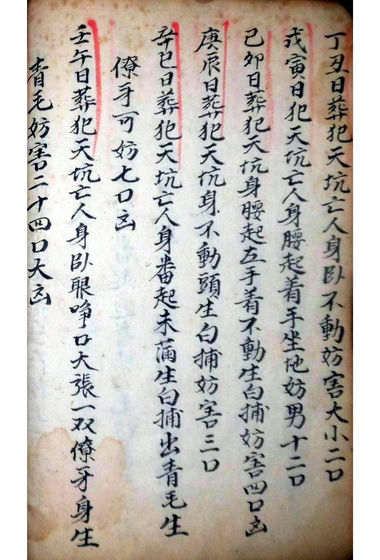 丁丑日葬犯天坑亡人身卧不動妨害大小二口
戊寅日犯天坑亡人身腰起着手坐地妨男十二口
己卯日葬犯天坑身腰起左手着不動生白捕妨害四口凶
庚辰日葬犯天坑身不動頭生白捕妨害三口
辛巳日葬犯天坑亡人身番起未滿生白捕出青毛生
獠牙可妨七口凶
壬午日葬犯天坑亡人身卧眼睜口大張一双獠牙身生
青毛妨害二十四口大凶